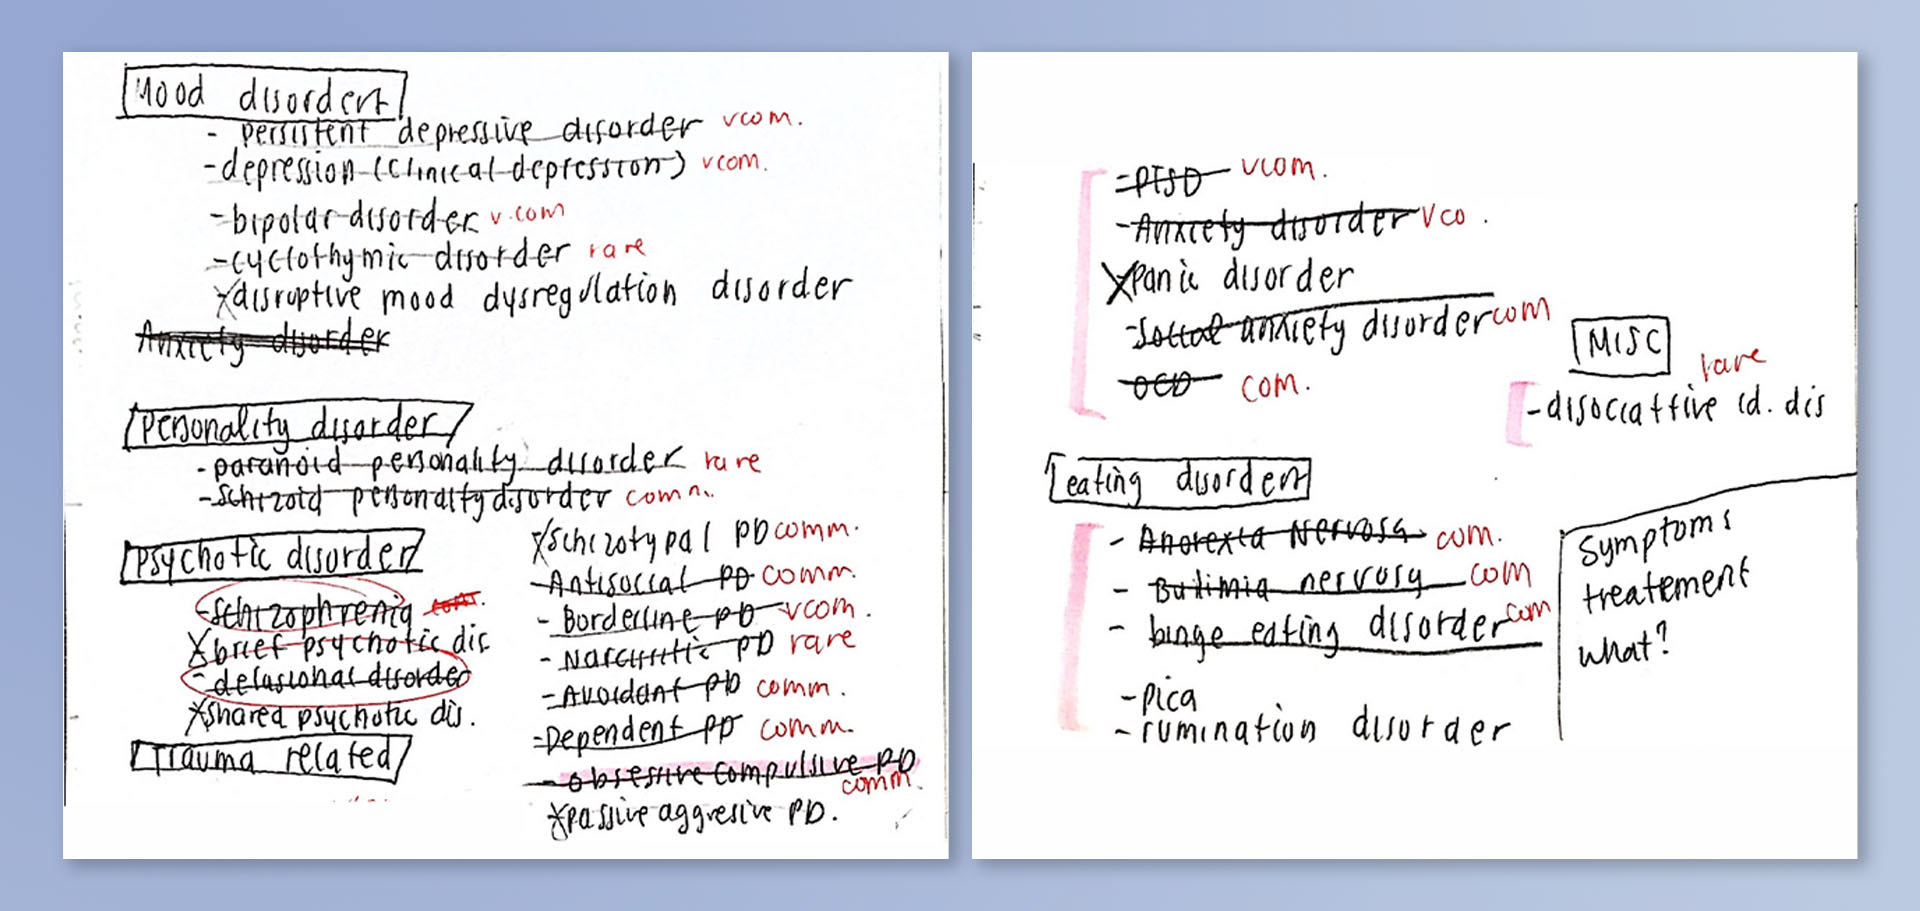 Mood disorders
- persistent depressive disorder vcom.
- depression (clinical depression) vcom.
- bipolar disorder v.com
- cyclothymic disorder rare
x disruptive mood dysregulation disorder
Anxiety disorder
Personality disorder
- paranoid personality disorder rare
- Schizoid personality disorder comm.
x Schizotypal PD comm.
- Antisocial PD comm.
- Borderline PD vcom.
- Narcisitic PD rare
- Avoidant PD comm.
- Dependent PD comm.
- obsessive compulsive PD comm.
x passive aggresive PD.
Psychotic disorder
- schizophrenia
x brief psychotic dis
- delusional disorder
x shared psychotic dis.
Trauma related
- PTSD vcom.
- Anxiety disorder vco.
x panic disorder
- Social anxiety disorder com
- OCD com.
MISC
rare
- disociattive id. dis
eating disorders
- Anorexia Nervosa com.
- Bulimia nervosa com
- binge eating disorder com
- pica
- rumination disorder
Symptoms
treatement
what?